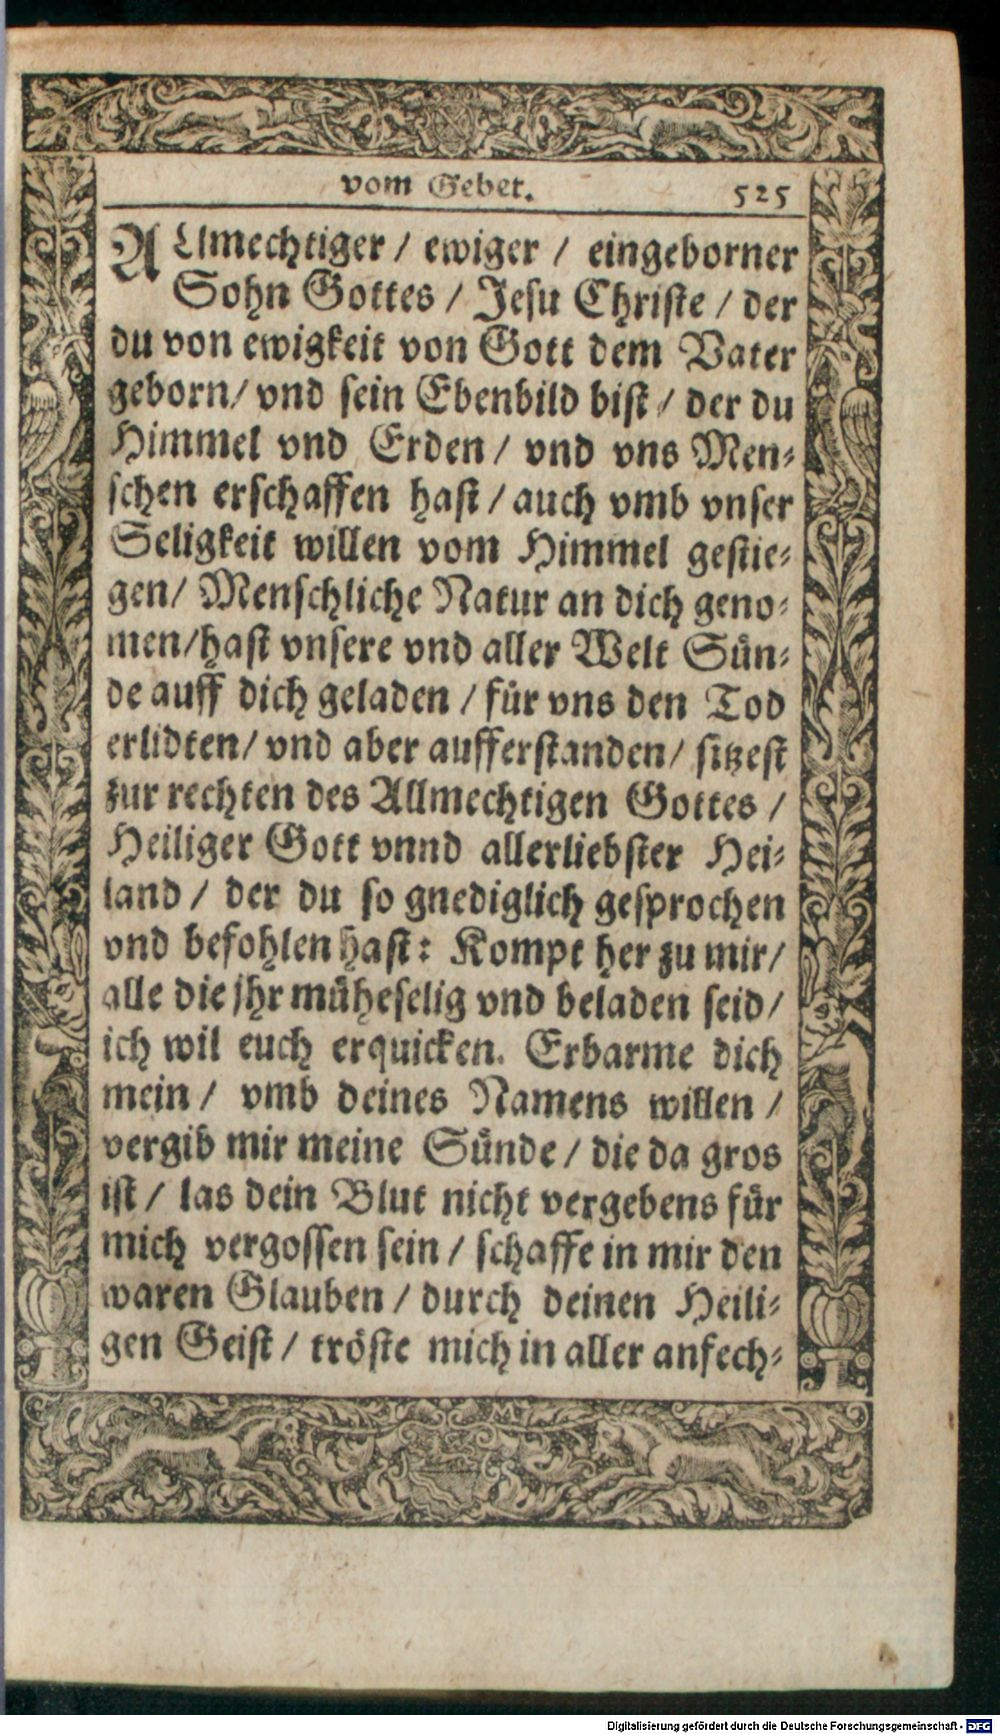 vom Gebet. 525
ALlmechtiger / ewiger / eingeborner
Sohn Gottes / Jesu Christe / der
du von ewigkeit von Gott dem Vater
geborn / vnd sein Ebenbild bist / der du
Himmel vnd Erden / vnd vns Men⸗
schen erschaffen hast / auch vmb vnser
Seligkeit willen vom Himmel gestie⸗
gen / Menschliche Natur an dich geno⸗
men / hast vnsere vnd aller Welt Sün⸗
de auff dich geladen / für vns den Tod
erlidten / vnd aber aufferstanden / sitzest
zur rechten des Allmechtigen Gottes /
Heiliger Gott vnnd allerliebster Hei⸗
land / der du so gnediglich gesprochen
vnd befohlen hast: Kompt her zu mir /
alle die jhr müheselig vnd beladen seid /
ich wil euch erquicken. Erbarme dich
mein / vmb deines Namens willen /
vergib mir meine Sünde / die da gros
ist / las dein Blut nicht vergebens für
mich vergossen sein / schaffe in mir den
waren Glauben / durch deinen Heili⸗
gen Geist / tröste mich in aller anfech⸗
Digitalisierung gefördert durch die Deutsche Forschungsgemeinschaft - DFG